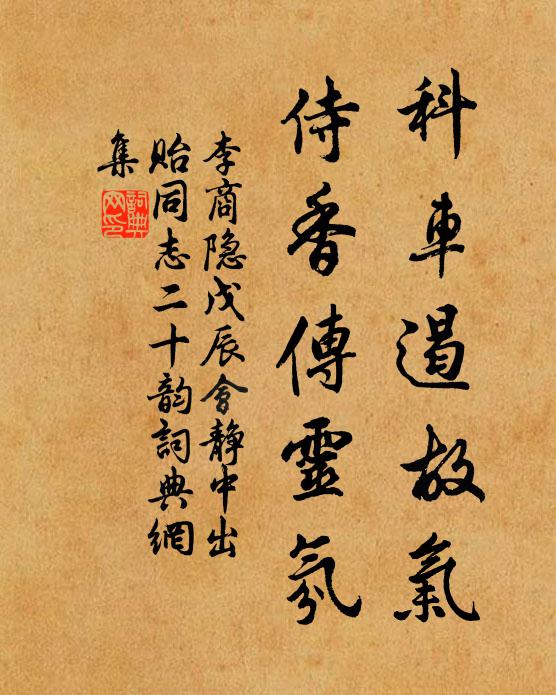 科車遏故氣
侍香傳靈氛
李商隐戊辰會静中出
貽同志二十韵詞典網
集
詞典
网印